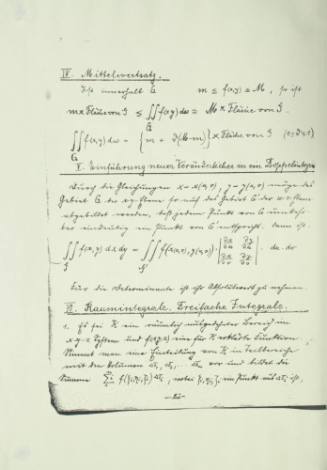 IV. Mittelwertsatz.
Ist innerhalb G m ≤ f(x,y) ≤ M, so ist
m × Fläche von G ≤ ∬ f(x,y) dω = M × Fläche von G.
G
∬ f(x,y) dω = {m + ϑ(M-m)} × Fläche von G (0≤ϑ≤1)
G
V. Einführung neuer Veränderlicher in ein Doppelintegral
Durch die Gleichungen x = x(u,v), y = y(u,v) möge das
Gebiet G der xy-Ebene so auf das Gebiet G' der uv-Ebene
abgebildet werden, daß jedem Punkt von G umkehr-
bar eindeutig ein Punkt von G' entspricht, dann ist
∬ f(x,y) dx dy = ∬ f(x(u,v), y(u,v)) · | ∂x/∂u ∂x/∂v ∂y/∂u ∂y/∂v | du dv
Für die Determinante ist ihr Absolutwert zu nehmen
VI. Raumintegrale. Dreifache Integrale.
1. Es sei R ein räumlich ausgedehnter Bereich im
x-y-z System und f(x,y,z) eine für R erklärte Funktion.
Nimmt man eine Einteilung von R in Teilbereiche
mit den Volumen Δτ₁, Δτ₂ ... Δτₙ vor und bildet die
Summe Σ f(ξᵢ, ηᵢ, ζᵢ) Δτᵢ, wobei ξᵢ, ηᵢ, ζᵢ ein Punkt aus Δτᵢ ist,